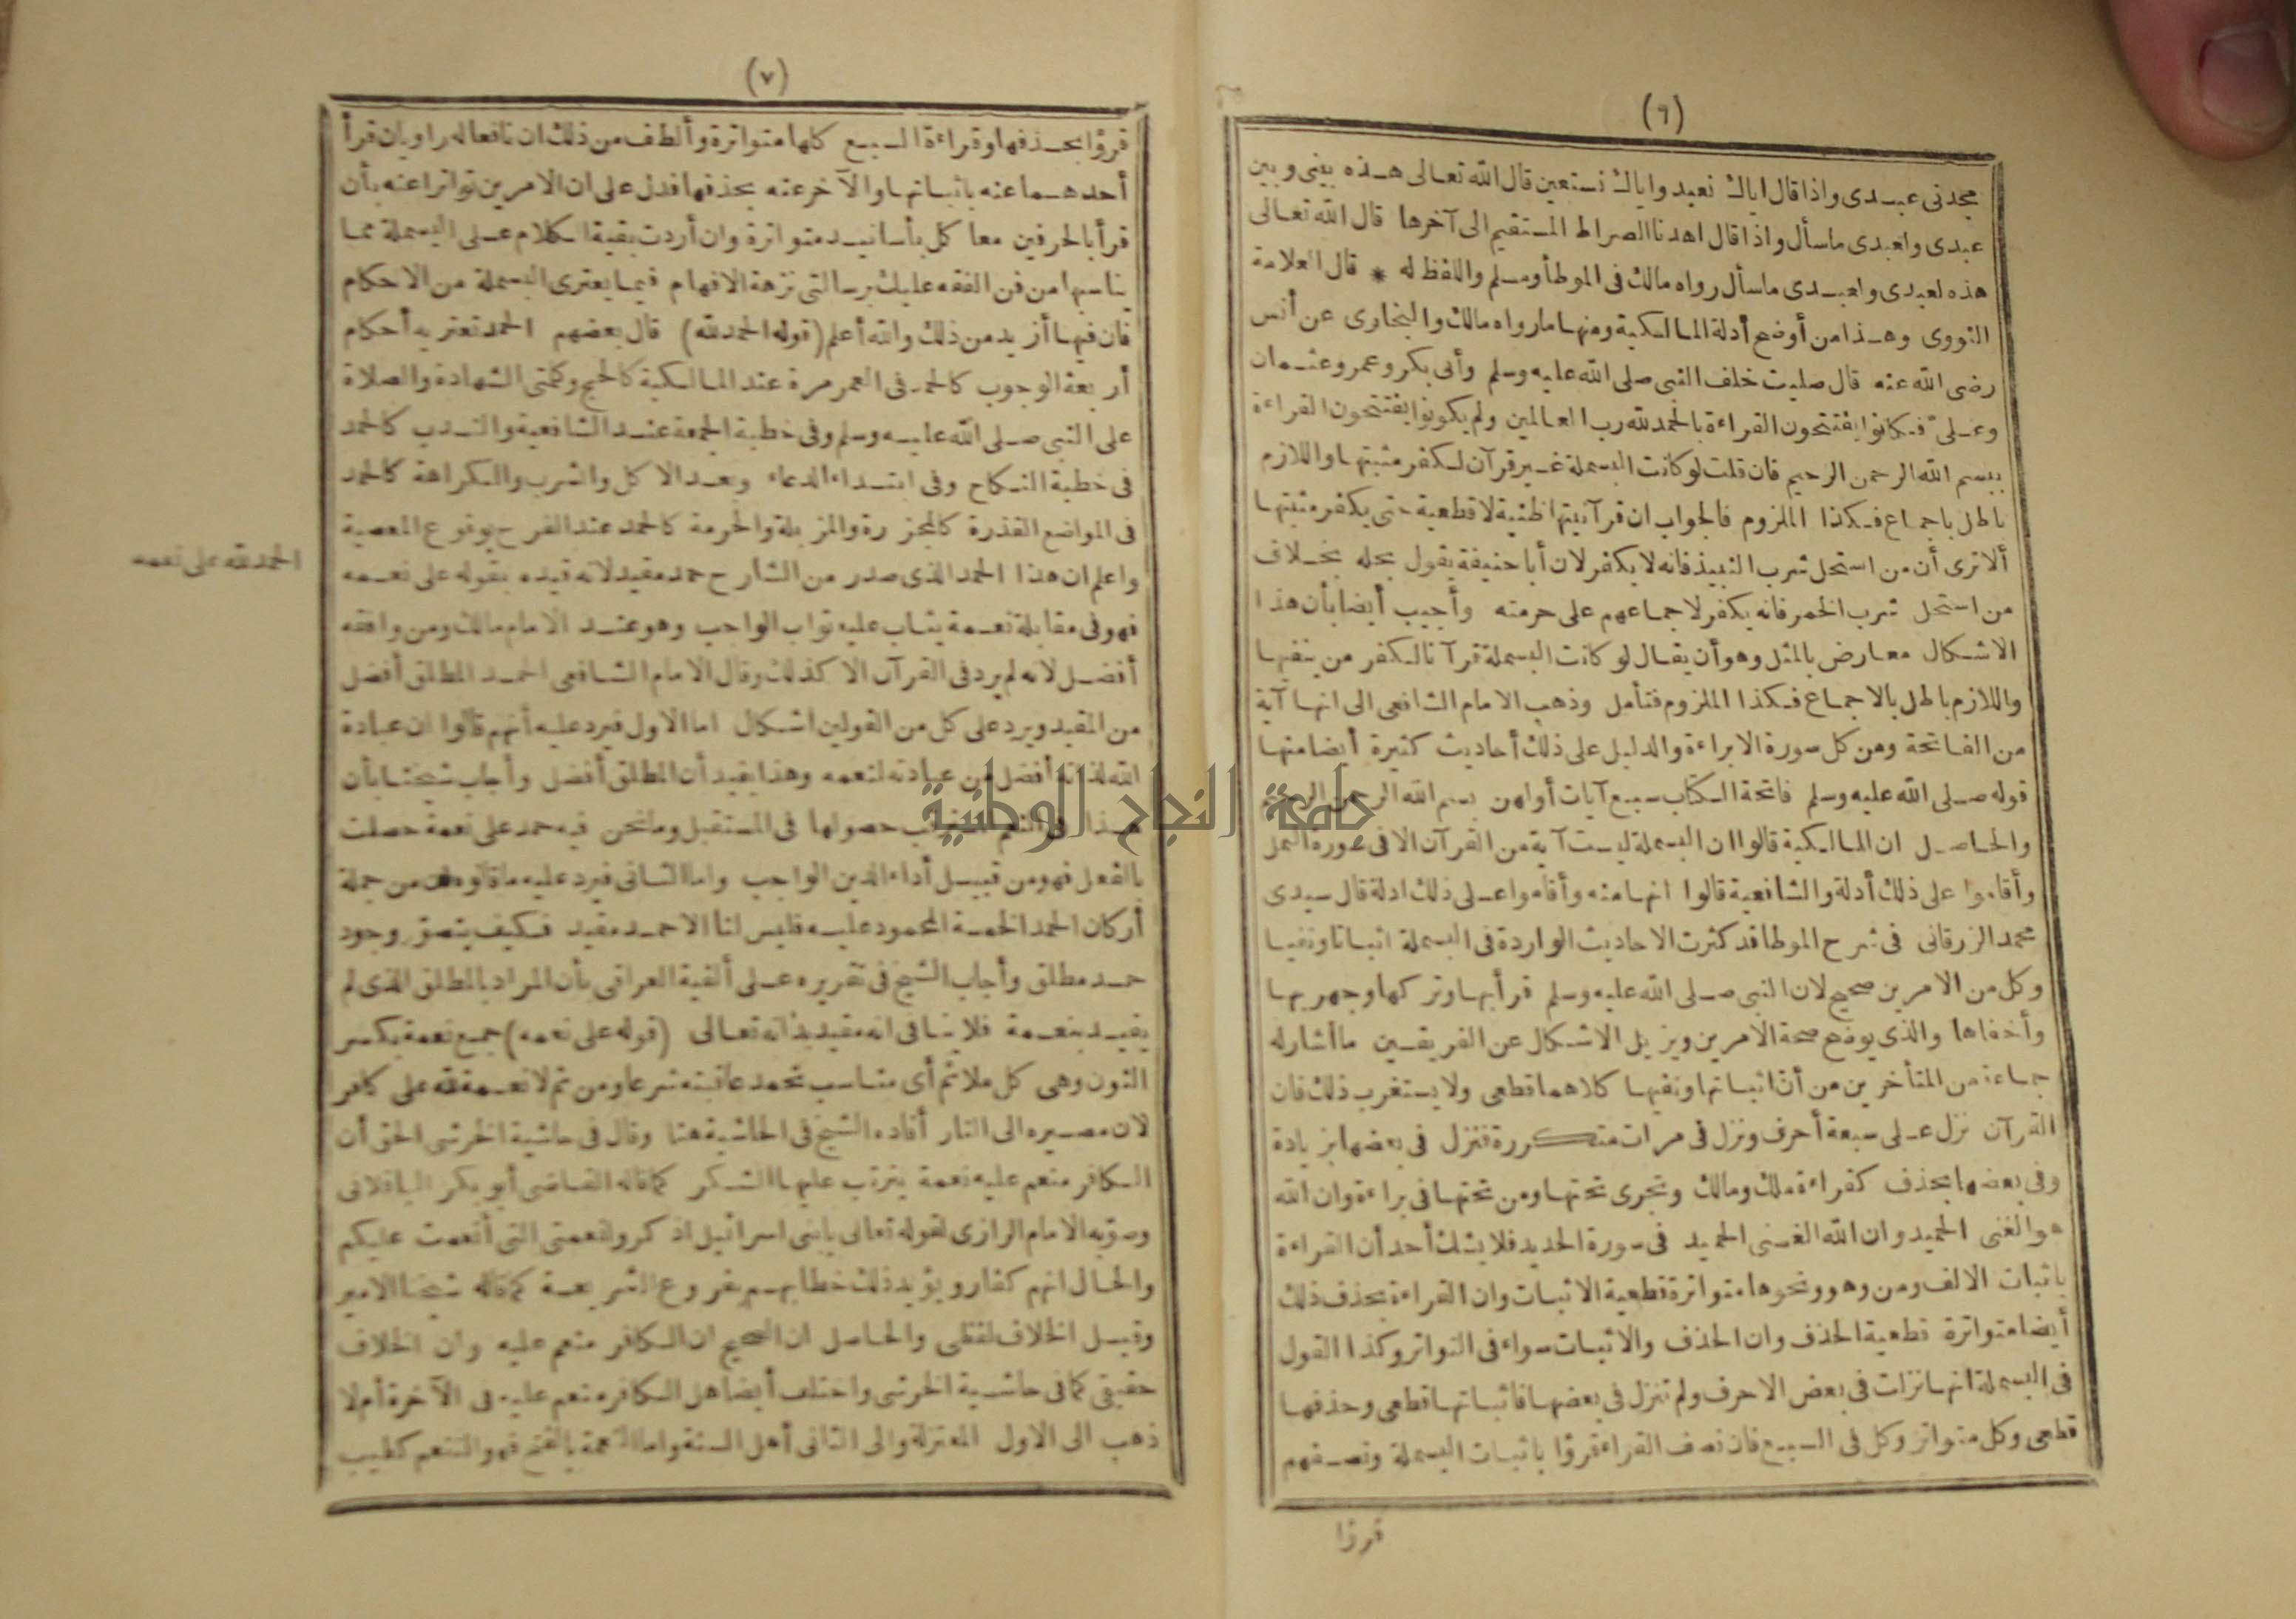 (٦)
مجدنى عبدى واذا قال اياك نعبد واياك نستعين قال الله تعالى هذه بينى وبين
عبدى ولعبدى ماسأل واذا قال اهدنا الصراط المستقيم الى آخرها قال الله تعالى
هذه لعبدى ولعبدى ماسأل رواه مالك فى الموطأ ومسلم واللفظ له * قال العلامة
النووى وهذا من أوضح أدلة المالكية ومنها مارواه مالك والبخارى عن أنس
رضى الله عنه قال صليت خلف النبى صلى الله عليه وسلم وأبى بكر وعمر وعثمان
وعلى فكانوا يفتتحون القراءة بالحمد لله رب العالمين ولم يكونوا يفتتحون القراءة
ببسم الله الرحمن الرحيم فان قلت لو كانت البسملة غير قرآن لكفر مثبتها واللازم
باطل باجماع فكذا الملزوم فالجواب ان قرآنيتها ظنية لا قطعية حتى يكفر مثبتها
ألا ترى أن من استحل شرب النبيذ فانه لا يكفر لان أبا حنيفة يقول بحله بخلاف
من استحل شرب الخمر فانه يكفر لاجماعهم على حرمته وأجيب أيضا بأن هذا
الاشكال معارض بالمثل وهو أن يقال لو كانت البسملة قرآنا لكفر من ينفيها
واللازم باطل بالاجماع فكذا الملزوم فتأمل وذهب الامام الشافعى الى انها آية
من الفاتحة ومن كل سورة الا براءة والدليل على ذلك أحاديث كثيرة أيضا منها
قوله صلى الله عليه وسلم فاتحة الكتاب سبع آيات أولهن بسم الله الرحمن الرحيم
والحاصل ان المالكية قالوا ان البسملة ليست آية من القرآن الا فى سورة النمل
وأقاموا على ذلك أدلة والشافعية قالوا انها منه وأقاموا على ذلك ادلة قال سيدى
محمد الزرقانى فى شرح الموطا قد كثرت الاحاديث الواردة فى البسملة اثباتا ونفيا
وكل من الامرين صحيح لان النبى صلى الله عليه وسلم قرأ بها وتركها وجهر بها
وأخفاها والذى يوضح صحة الامرين ويزيل الاشكال عن الفريقين ما أشار له
جماعة من المتأخرين من أن اثباتها ونفيها كلاهما قطعى ولا يستغرب ذلك فان
القرآن نزل على سبعة أحرف ونزل فى مرات متكررة فنزل فى بعضها بزيادة
وفى بعضها بحذف كقراءة ملك ومالك وتجرى تحتها ومن تحتها فى براءة وان الله
هو الغنى الحميد وان الله الغنى الحميد فى سورة الحديد فلا يشك أحد أن القراءة
باثبات الالف ومن وهو ونحوها متواترة قطعية الاثبات وان القراءة بحذف ذلك
أيضا متواترة قطعية الحذف وان الحذف والاثبات سواء فى التواتر وكذا القول
فى البسملة انها نزلت فى بعض الاحرف ولم تنزل فى بعضها فاثباتها قطعى وحذفها
قطعى وكل متواتر وكل فى السبع فان نصف القراء قرؤا باثبات البسملة ونصفهم
قرؤا
(٧)
قرؤا بحذفها وقراءة السبع كلها متواترة وألطف من ذلك ان نافعا له راويان قرأ
أحدهما عنه باثباتها والآخر عنه بحذفها فدل على ان الامرين تواترا عنه بأن
قرأ بالحرفين معا كل بأسانيد متواترة وان أردت بقية الكلام على البسملة مما
يناسبها من فن الفقه عليك برسالتى نزهة الافهام فيما يعترى البسملة من الاحكام
فان فيها أزيد من ذلك والله أعلم (قوله الحمد لله) قال بعضهم الحمد تعتريه أحكام
أربعة الوجوب كالحمد فى العمر مرة عند المالكية كالحج وكلمتى الشهادة والصلاة
على النبى صلى الله عليه وسلم وفى خطبة الجمعة عند الشافعية والندب كالحمد
فى خطبة النكاح وفى ابتداء الدعاء وبعد الاكل والشرب والكراهة كالحمد
فى المواضع القذرة كالمجزرة والمزبلة والحرمة كالحمد عند الفرح بوقوع المعصية
واعلم ان هذا الحمد الذى صدر من الشارح حمد مقيد لانه قيده بقوله على نعمه
فهو فى مقابلة نعمة يثاب عليه ثواب الواجب وهو عند الامام مالك ومن وافقه
أفضل لانه لم يرد فى القرآن الا كذلك وقال الامام الشافعى الحمد المطلق أفضل
من المقيد ويرد على كل من القولين اشكال اما الاول فيرد عليه أنهم قالوا ان عبادة
الله لذاته أفضل من عبادته لنعمه وهذا يفيد أن المطلق أفضل وأجاب شيخنا بأن
هذا فى النعم حصولها فى المستقبل ومانحن فيه حمد على نعمة حصلت
بالفعل فهو من قبيل أداء الدين الواجب واما الثانى فيرد عليه ماقالوه من جملة
أركان الحمد الخمسة المحمود عليه فليس لنا الا حمد مقيد فكيف يتصور وجود
حمد مطلق وأجاب الشيخ فى تقريره على ألفية العراقى بأن المراد بالمطلق الذى لم
يقيد بنعمة فلا ينافى انه مقيد بذاته تعالى (قوله على نعمه) جمع نعمة بكسر
النون وهى كل ملائم أى مناسب تحمد عاقبته شرعا ومن ثم لا نعمة لله على كافر
لان مصيره الى النار أفاده الشيخ فى الحاشية هنا وقال فى حاشية الخرشى الحق أن
الكافر منعم عليه نعمة يترتب عليها الشكر كما قاله القاضى أبو بكر الباقلانى
وصوّبه الامام الرازى لقوله تعالى يا بنى اسرائيل اذكروا نعمتى التى أنعمت عليكم
والحال انهم كفار ويؤيد ذلك خطابهم بفروع الشريعة كما قاله شيخنا الامير
وقيل الخلاف لفظى والحاصل ان الصحيح ان الكافر منعم عليه وان الخلاف
حقيقى كما فى حاشية الخرشى واختلف أيضا هل الكافر منعم عليه فى الآخرة أم لا
ذهب الى الاول المعتزلة والى الثانى أهل السنة واما النعمة بالفتح فهو التنعم كطيب
الحمد لله على نعمه
جامعة النجاح الوطنية